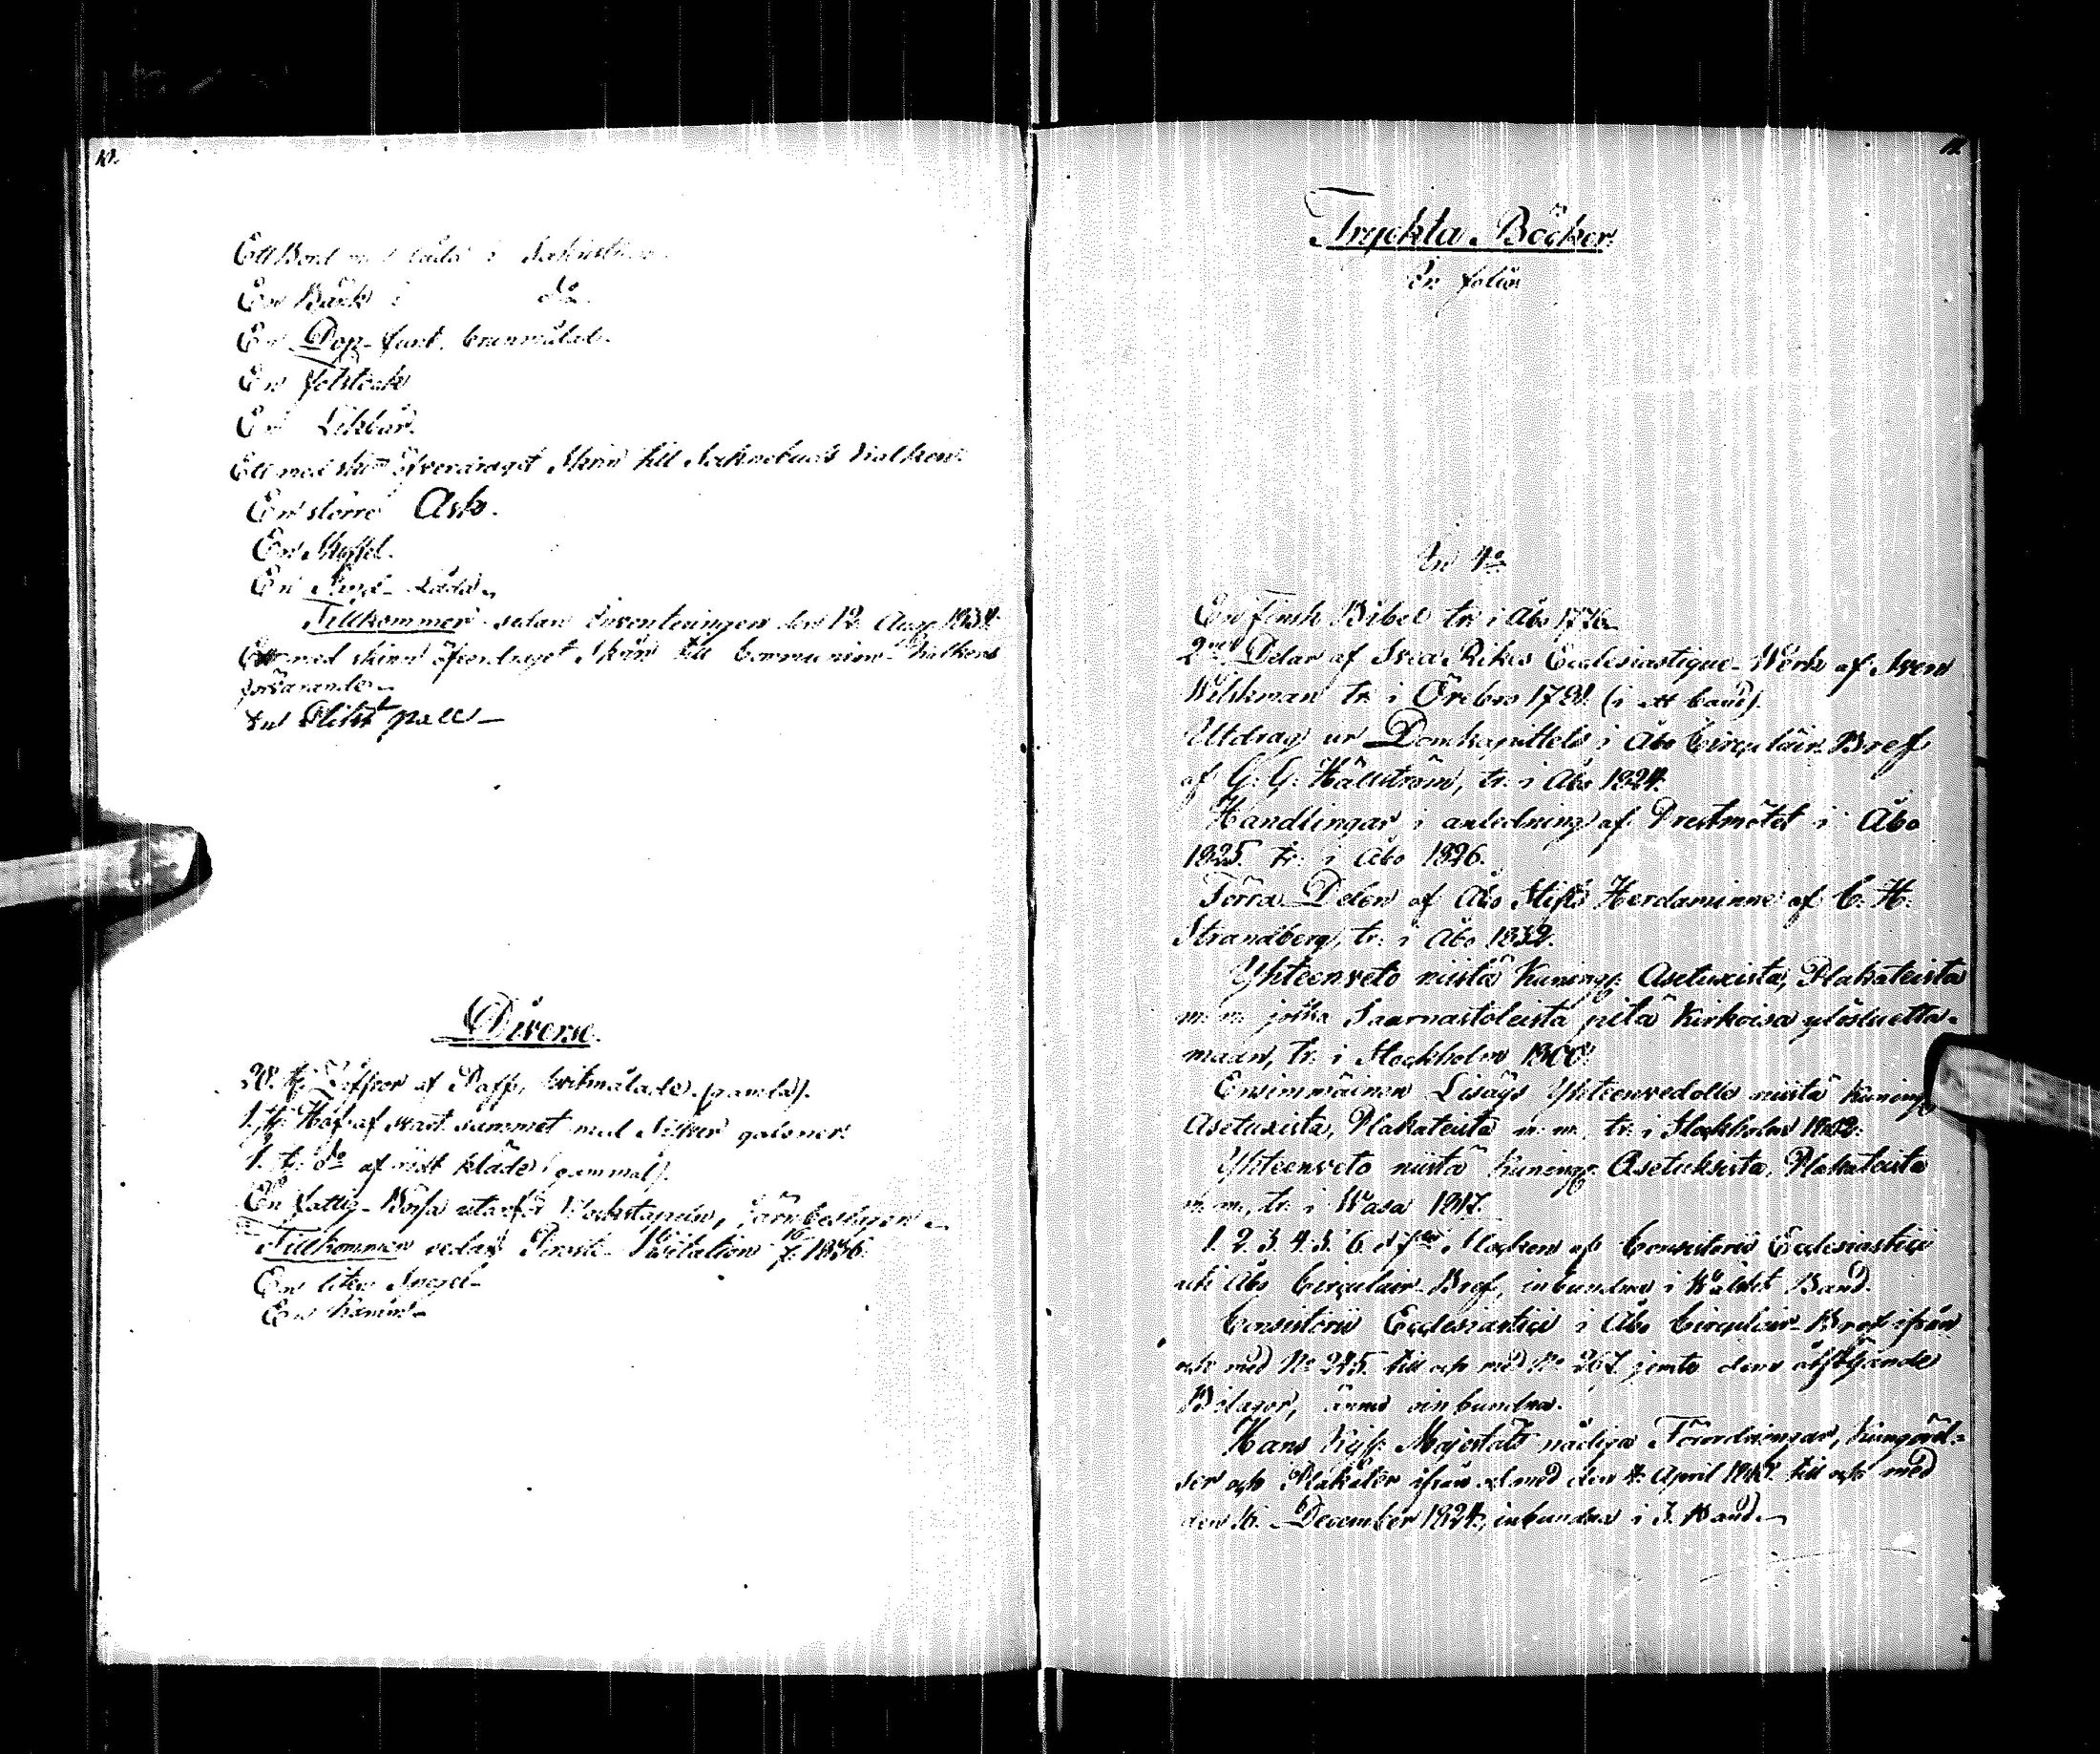 10.
Ett Bord med låda i Sakristian
En Bänk i do.
En Dop-funt, brunmålad.
En fotstock
En Likbår.
Ett med skinn öfverdraget Skrin till Sockenbuds kalken.
En större Ask.
En Skyffel.
En Sand-Låda.
Tillkommer sedan Inventeringen den 12. Aug. 1834.
Ett med skinn öfverdraget Skrin till Communion-kalkens
förvarande.
En Plikt pall
Diverse.
Siffror af Papp, hvitmålade. (gamla).
1. st. Håf af svart sammet med Silver galoner.
1. st. do af rödt kläde (gammal).
En fattig-Bössa utanför Klockstapeln, järnbeslagen
Tillkommer sedan Prosts-Visitation 1836.
En liten Spegel
En Kamm
11.
Tryckta Böcker.
In folio
In 4o
En Finsk Bibel tr. i Åbo 1776.
2ne Delar af Svea Rikes Ecclesiastique-Werk af Sven
Wilskman tr. i Örebro 1781 (i ett band).
Utdrag ur Domkapitlets i Åbo Circulair-Bref
af G. G. Hällström, tr. i Åbo 1824.
Handlingar i anledning af Prestmötet i Åbo
1825. tr. i Åbo 1826.
Förra Delen af Åbo Stifts Herdaminne af C. H.
Strandberg, tr. i Åbo 1832.
Yhteenveto niistä Kuningl. Asetuxista, Plakateista
m. m. jotka Saarnastoleista pitä Kirkoisa ylösluetta-
maan, tr. i Stockholm 1800.
Ensimmäinen Lisäys Yhteenvedolle niistä Kuningl.
Asetuxista, Plakateista m. m. tr. i Stockholm 1802.
Yhteenveto niistä Kuningl. Asetuksista, Plakateista
m. m. tr. i Wasa 1817.
1. 2. 3. 4. 5. 6. & 7de Stycken af Consistorii Ecclesiastici
uti Åbo Circulair-Bref, inbundna i Band.
Consistorii Ecclesiastici i Åbo Circulair-Bref ifrån
och med No 245. till och med No 267. jemte dem åtföljande
Bilagor, ännu oinbundna.
Hans Kejs. Majestäts nådiga Förordningar, Kungörel-
ser och Plakater ifrån och med den 4. April till och med
den 16. December 1824, inbundna i 3. Band.